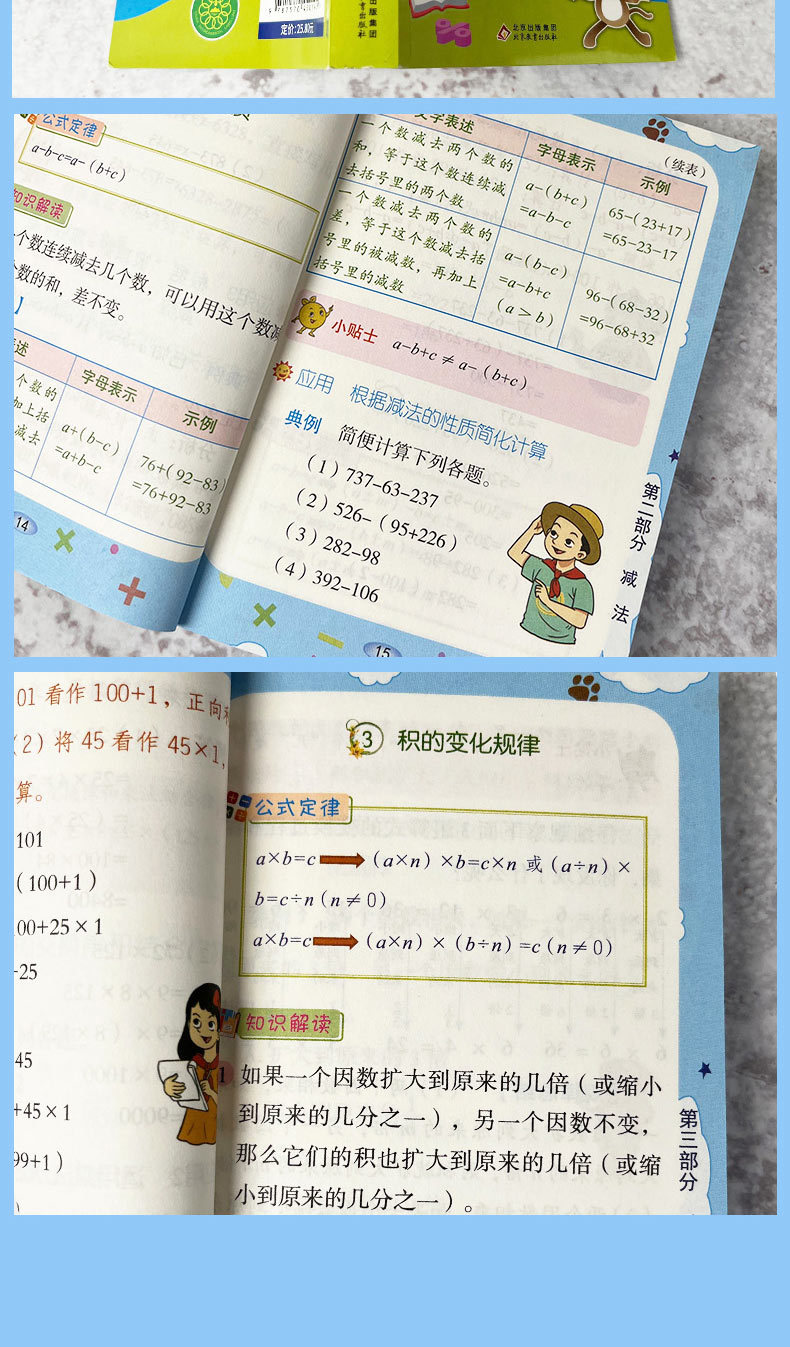 定价:25.80元
北京出版集团
北京教育出版社
公式定律
a-b-c=a-(b+c)
知识解读
个数连续减去几个数，可以用这个数减
数的和，差不变。
】
述
字母表示
示例
个数的
加上括
减去
a+(b-c)
=a+b-c
76+(92-83)
=76+92-83
14
(续表)
文字表述
字母表示
示例
一个数减去两个数的
和，等于这个数连续减
去括号里的两个数
a-(b+c)
=a-b-c
65-(23+17)
=65-23-17
一个数减去两个数的
差，等于这个数减去括
号里的被减数，再加上
括号里的减数
a-(b-c)
=a-b+c
(a>b)
96-(68-32)
=96-68+32
小贴士 a-b+c≠a-(b+c)
应用 根据减法的性质简化计算
典例 简便计算下列各题。
(1)737-63-237
(2)526-(95+226)
(3)282-98
(4)392-106
第二部分 减法
15
01看作100+1，正向利
(2)将45看作45×1，
算。
101
(100+1)
00+25×1
-25
45
+45×1
99+1)
3 积的变化规律
公式定律
a×b=c (a×n)×b=c×n 或 (a÷n)×
b=c÷n(n≠0)
a×b=c (a×n)×(b÷n)=c(n≠0)
知识解读
1 如果一个因数扩大到原来的几倍(或缩小
到原来的几分之一)，另一个因数不变，
那么它们的积也扩大到原来的几倍(或缩
小到原来的几分之一)。
第三部分